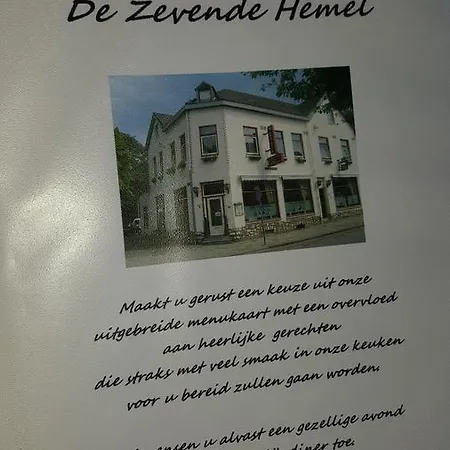 De Zevende Hemel
Maakt u gerust een keuze uit onze
uitgebreide menukaart met een overvloed
aan heerlijke gerechten
die straks met veel smaak in onze keuken
voor u bereid zullen gaan worden.
u alvast een gezellige avond
diner toe.